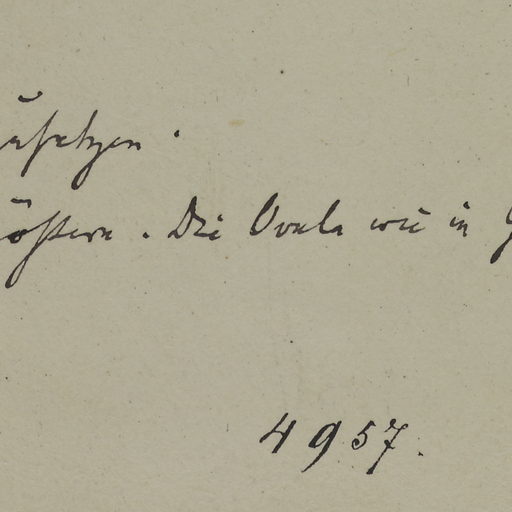 ußetzen.
rößern. Die Ovale wie in
4957.